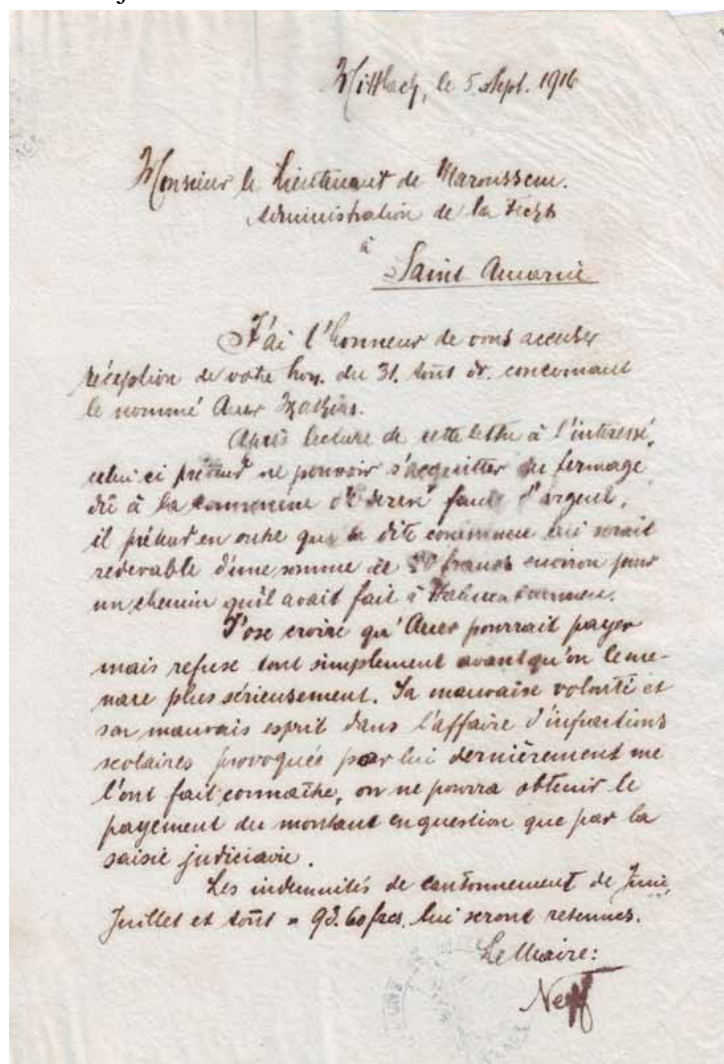 Mittlach, le 5 Sept. 1916
Monsieur le Lieutenant de Maroussem.
Administration de la
à
Saint Amarin
J'ai l'honneur de vous accuser
réception de votre hon. du 31. Août dr. concernant
le nommé Auer Mathias.
Après lecture de cette lettre à l'interessé,
celui ci prétend ne pouvoir s'acquitter du fermage
dû à la commune faute d'argent,
il prétend en outre que la dite commune lui serait
redevable d'une somme de francs environ pour
un chemin qu'il avait fait à
J'ose croire qu'Auer pourrait payer
mais refuse tout simplement avant qu'on le me-
nace plus sérieusement. Sa mauvaise volonté et
son mauvais esprit dans l'affaire d'infractions
scolaires provoquée par lui dernièrement me
l'ont fait connaître, on ne pourra obtenir le
payement du montant en question que par la
saisie judiciaire.
Les indemnités de cantonnement de Juin,
Juillet et Août = 93.60 frcs. lui seront retenues.
Le Maire:
Neff